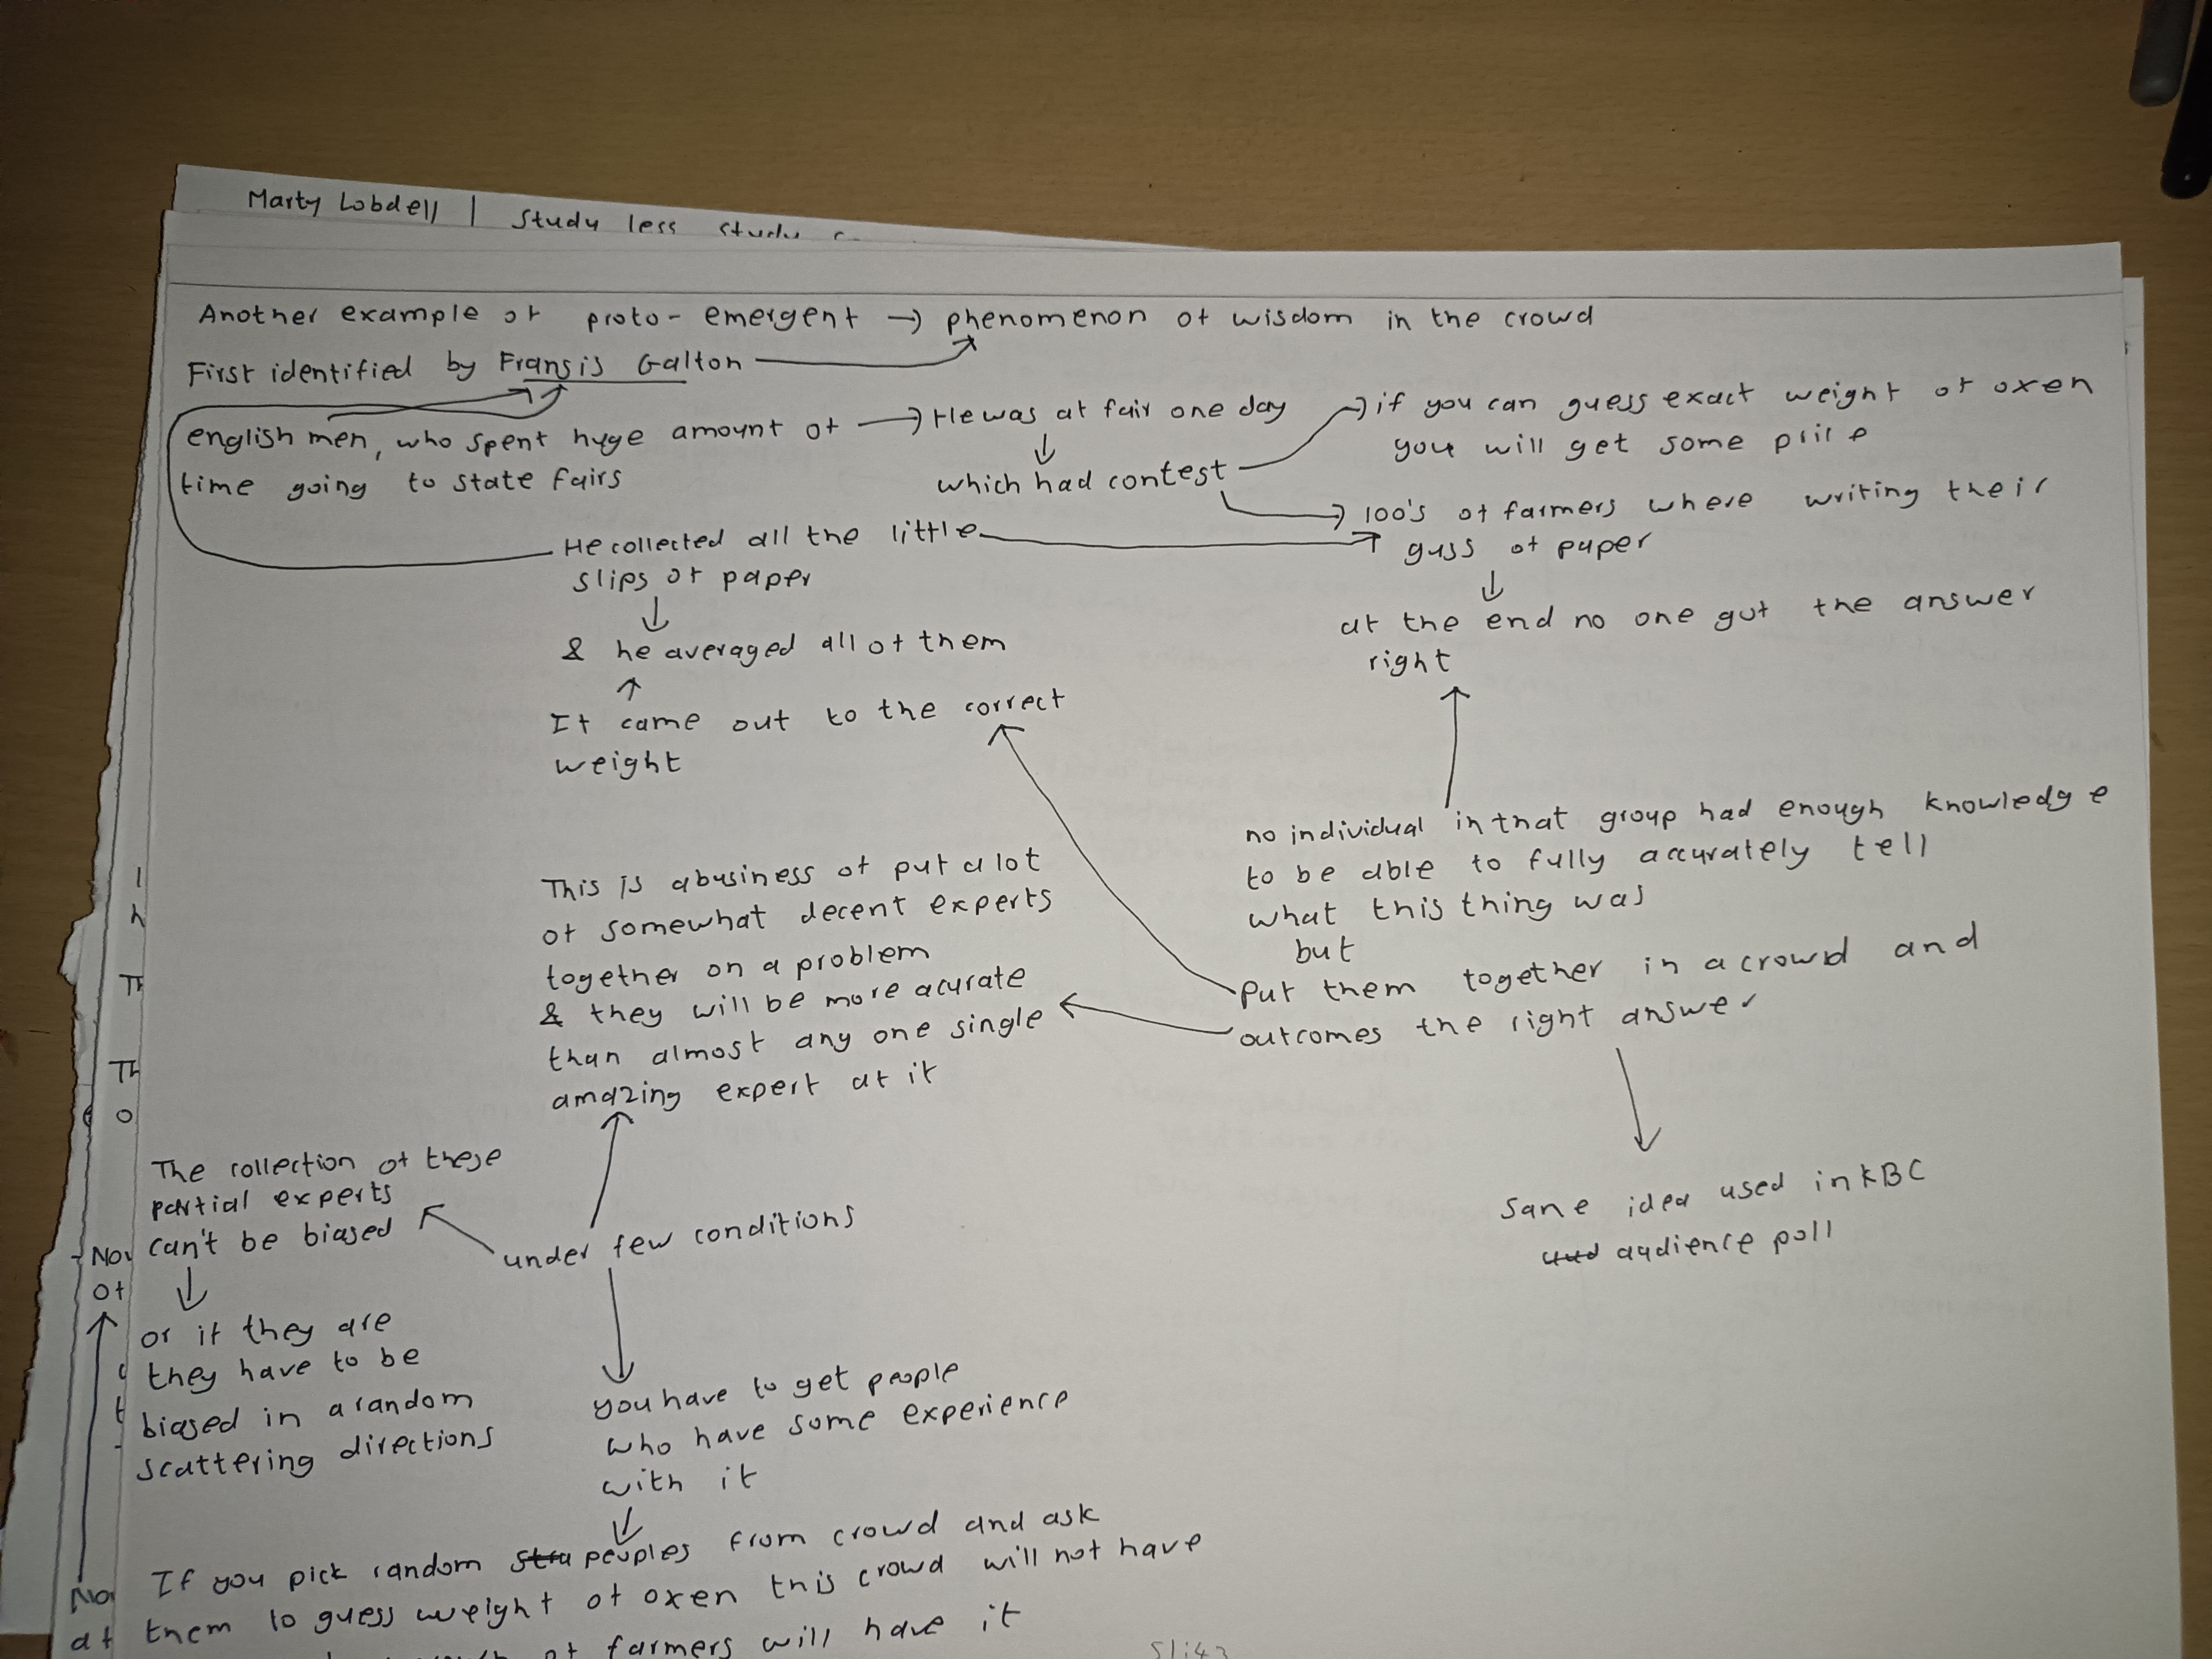 Marty Lobdell | Study less study
Another example of proto-emergent → phenomenon of wisdom in the crowd
First identified by Fransis Galton
english men, who spent huge amount of → He was at fair one day
time going to state fairs
which had contest
if you can guess exact weight of oxen
you will get some prize
100's of farmers where writing their
guss of paper
at the end no one gut the answer
right
He collected all the little
slips of paper
& he averaged all of them
It came out to the correct
weight
no individual in that group had enough knowledge
to be able to fully accurately tell
what this thing was
but
Put them together in a crowd and
outcomes the right answer
Sane idea used in KBC
audience poll
This is abusiness of put a lot
of somewhat decent experts
together on a problem
& they will be more acurate
than almost any one single
amazing expert at it
under few conditions
The collection of these
partial experts
can't be biased
or if they are
they have to be
biased in a random
scattering directions
you have to get people
who have some experience
with it
If you pick random peoples from crowd and ask
them to guess weight of oxen this crowd will not have
of farmers will have it